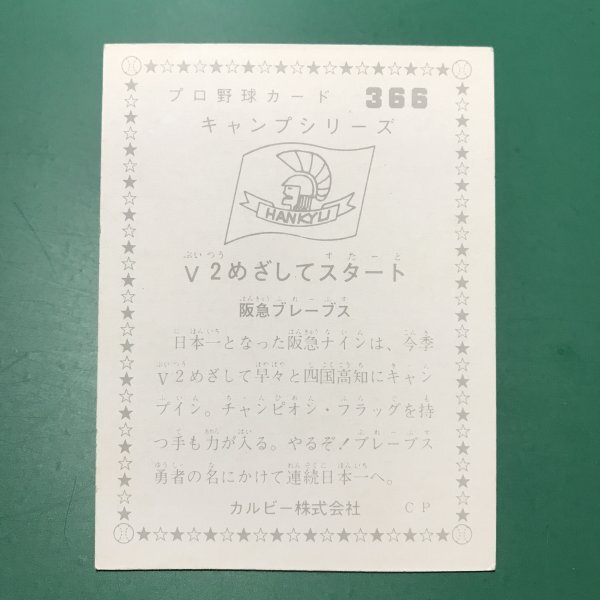 プロ野球カード 366
キャンプシリーズ
HANKYU
V2めざしてスタート
阪急ブレーブス
日本一となった阪急ナインは、今季
V2めざして早々と四国高知にキャン
プイン。チャンピオン・フラッグを持
つ手も力が入る。やるぞ！ブレーブス
勇者の名にかけて連続日本一へ。
カルビー株式会社 CP